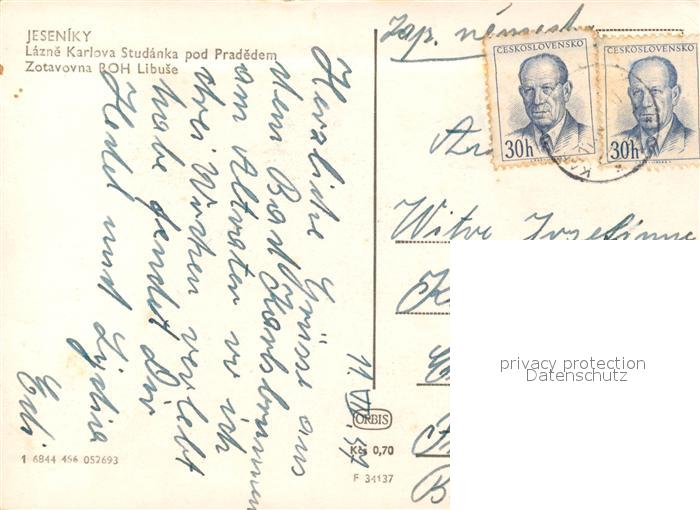 JESENÍKY
Lázně Karlova Studánka pod Pradědem
Zotavovna ROH Libuše
Zap. německ
ČESKOSLOVENSKO
30h
ČESKOSLOVENSKO
30h
Herzliche Grüsse aus
dem Bad Karlsbrunn
am Altvater wo ich
drei Wochen verlebt
habe sendet Dir
Hedel und Lydia
Edi
11. VII. 57
Witve Josefinne
ORBIS
Kčs 0,70
F 34137
1 6844 456 052693
privacy protection
Datenschutz